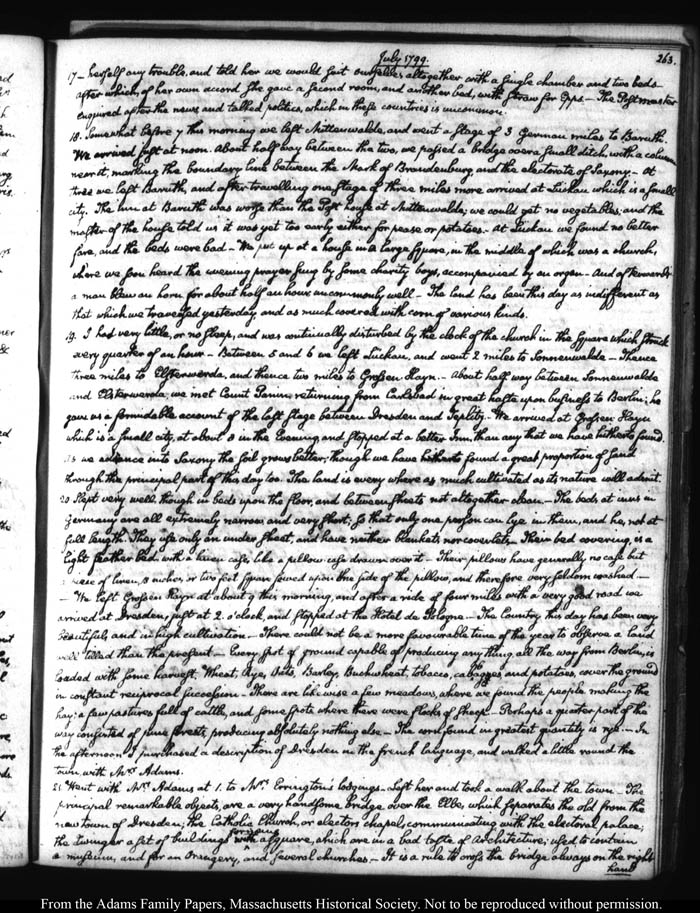 July 1799.
263.
17 – herself any trouble, and told her we would suit ourselves altogether with a single chamber and two beds
after which, of her own accord she gave a second room, and another bed, with straw for Epps – The Postmaster
enquired after the news and talked politics, which in these countries is uncommon.
18. Somewhat before 7 this morning we left Mittenwalde, and went a stage of 3 German miles to Baruth.
We arrived just at noon. About half way between the two, we passed a bridge over a small ditch, with a column
near it, marking the boundary line between the Mark of Brandenburg and the electorate of Saxony – At
three we left Baruth, and after travelling one stage of three miles more arrived at Luckau which is a small
city. The inn at Baruth was worse than the Post house at Mittenwalde; we could get no vegetables, and the
master of the house told us it was yet too early either for pease or potatoes. – At Luckau we found no better
fare, and the beds were bad – We put up at a house in a large square, in the middle of which was a church,
where we soon heard the evening prayer sung by some charity boys, accompanied by an organ – And afterwards
a man blew an horn for about half an hour uncommonly well – The land has been this day as indifferent as
that which we traversed yesterday, and as much covered with corn of various kinds.
19. I had very little, or no sleep, and was continually disturbed by the clock of the church in the square which struck
every quarter of an hour – Between 5 and 6 we left Luckau, and went 2 miles to Sonnenwalde – Thence
three miles to Elsterwerda, and thence two miles to Grossen Hayn. – About half way between Sonnenwalde
and Elsterwerda, we met Count Panin, returning from Carlsbad in great haste upon business to Berlin; he
gave us a formidable account of the last stage between Dresden and Teplitz. We arrived at Grossen Hayn
which is a small city, at about 8 in the Evening, and stopped at a better Inn, than any that we have hitherto found.
As we advance into Saxony the soil grows better; though we have hitherto found a great proportion of sand
through the principal part of this day too. The land is every where as much cultivated as its nature will admit.
20 Slept very well, though in beds upon the floor, and between sheets not altogether clean – The beds at inns in
Germany are all extremely narrow and very short; so that only one person can lye in them, and he, not at
full length. They use only an under sheet, and have neither blankets nor coverlets. – Their bed covering, is a
light feather bed, with a linen case, like a pillow-case drawn over it – Their pillows have generally no case but
piece of linen, 18 inches or two feet square sewed upon the side of the pillow, and therefore very seldom washed –
– We left Grossen Hayn at about 9 this morning, and after a ride of four miles with a very good road we
arrived at Dresden, just at 2. o'clock, and stopped at the Hotel de Pologne – The Country this day has been very
beautiful, and in high cultivation – There could not be a more favourable time of the year to observe a land
well tilled than the present – Every spot of ground capable of producing any thing, all the way from Berlin, is
loaded with some harvest. Wheat, Rye, Oats, Barley, Buckwheat, tobacco, cabbages and potatoes, cover the ground
in constant reciprocal succession. – There are likewise a few meadows, where we found the people making the
hay; a few pastures full of cattle, and some spots where there were flocks of sheep – Perhaps a quarter part of the
way consisted of pine forests, producing absolutely nothing else – The corn found in greatest quantity is rye. – In
the afternoon I purchased a description of Dresden in the french language, and walked a little round the
town, with Mrs. Adams.
21. Went with Mrs. Adams at 1. to Mrs. Errington's lodgings. – Left her and took a walk about the town – The
principal remarkable objects, are a very handsome bridge over the Elbe, which separates the old from the
new town of Dresden; the Catholic Church, or electors chapel, communicating with the electoral palace;
the twinger a set of buildings forming a square, which are in a bad taste of Architecture; used to contain
a museum, and for an Orangery, and several churches – It is a rule to cross the bridge always on the right
hand
From the Adams Family Papers, Massachusetts Historical Society. Not to be reproduced without permission.